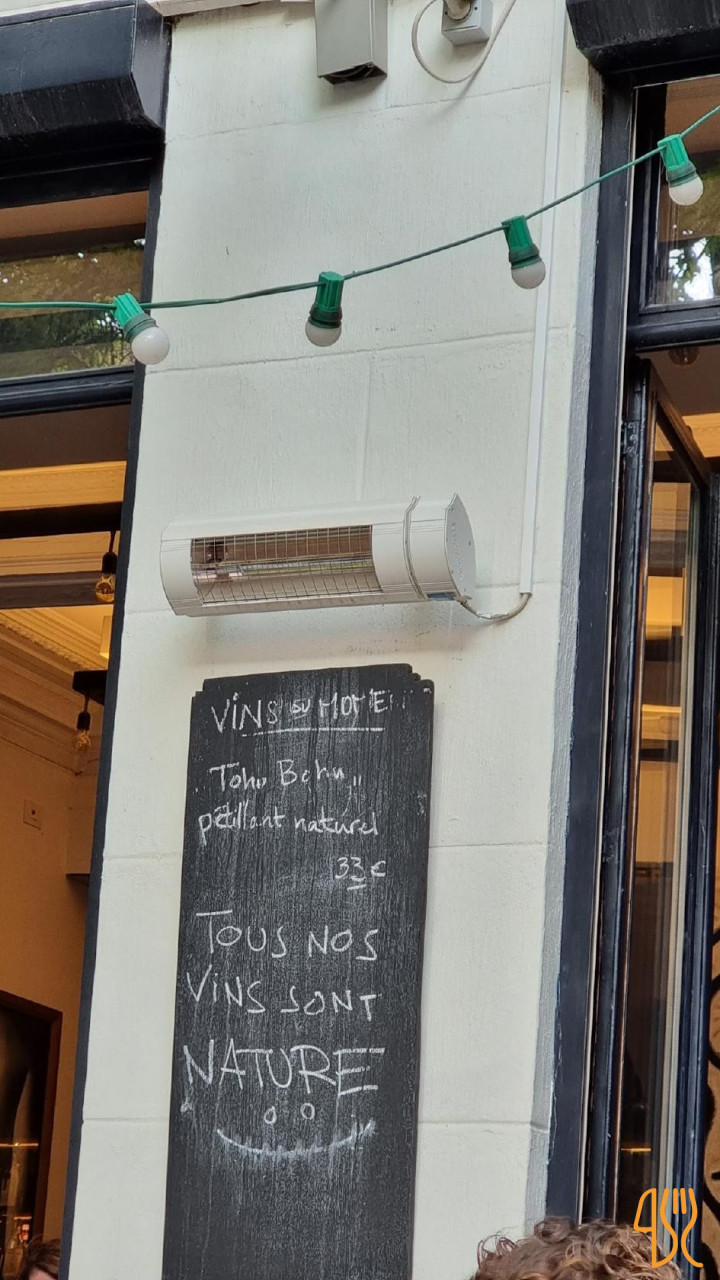 VINS DU MOMENT
"Tohu Bohu"
pétillant naturel
33€
TOUS NOS
VINS SONT
NATURE